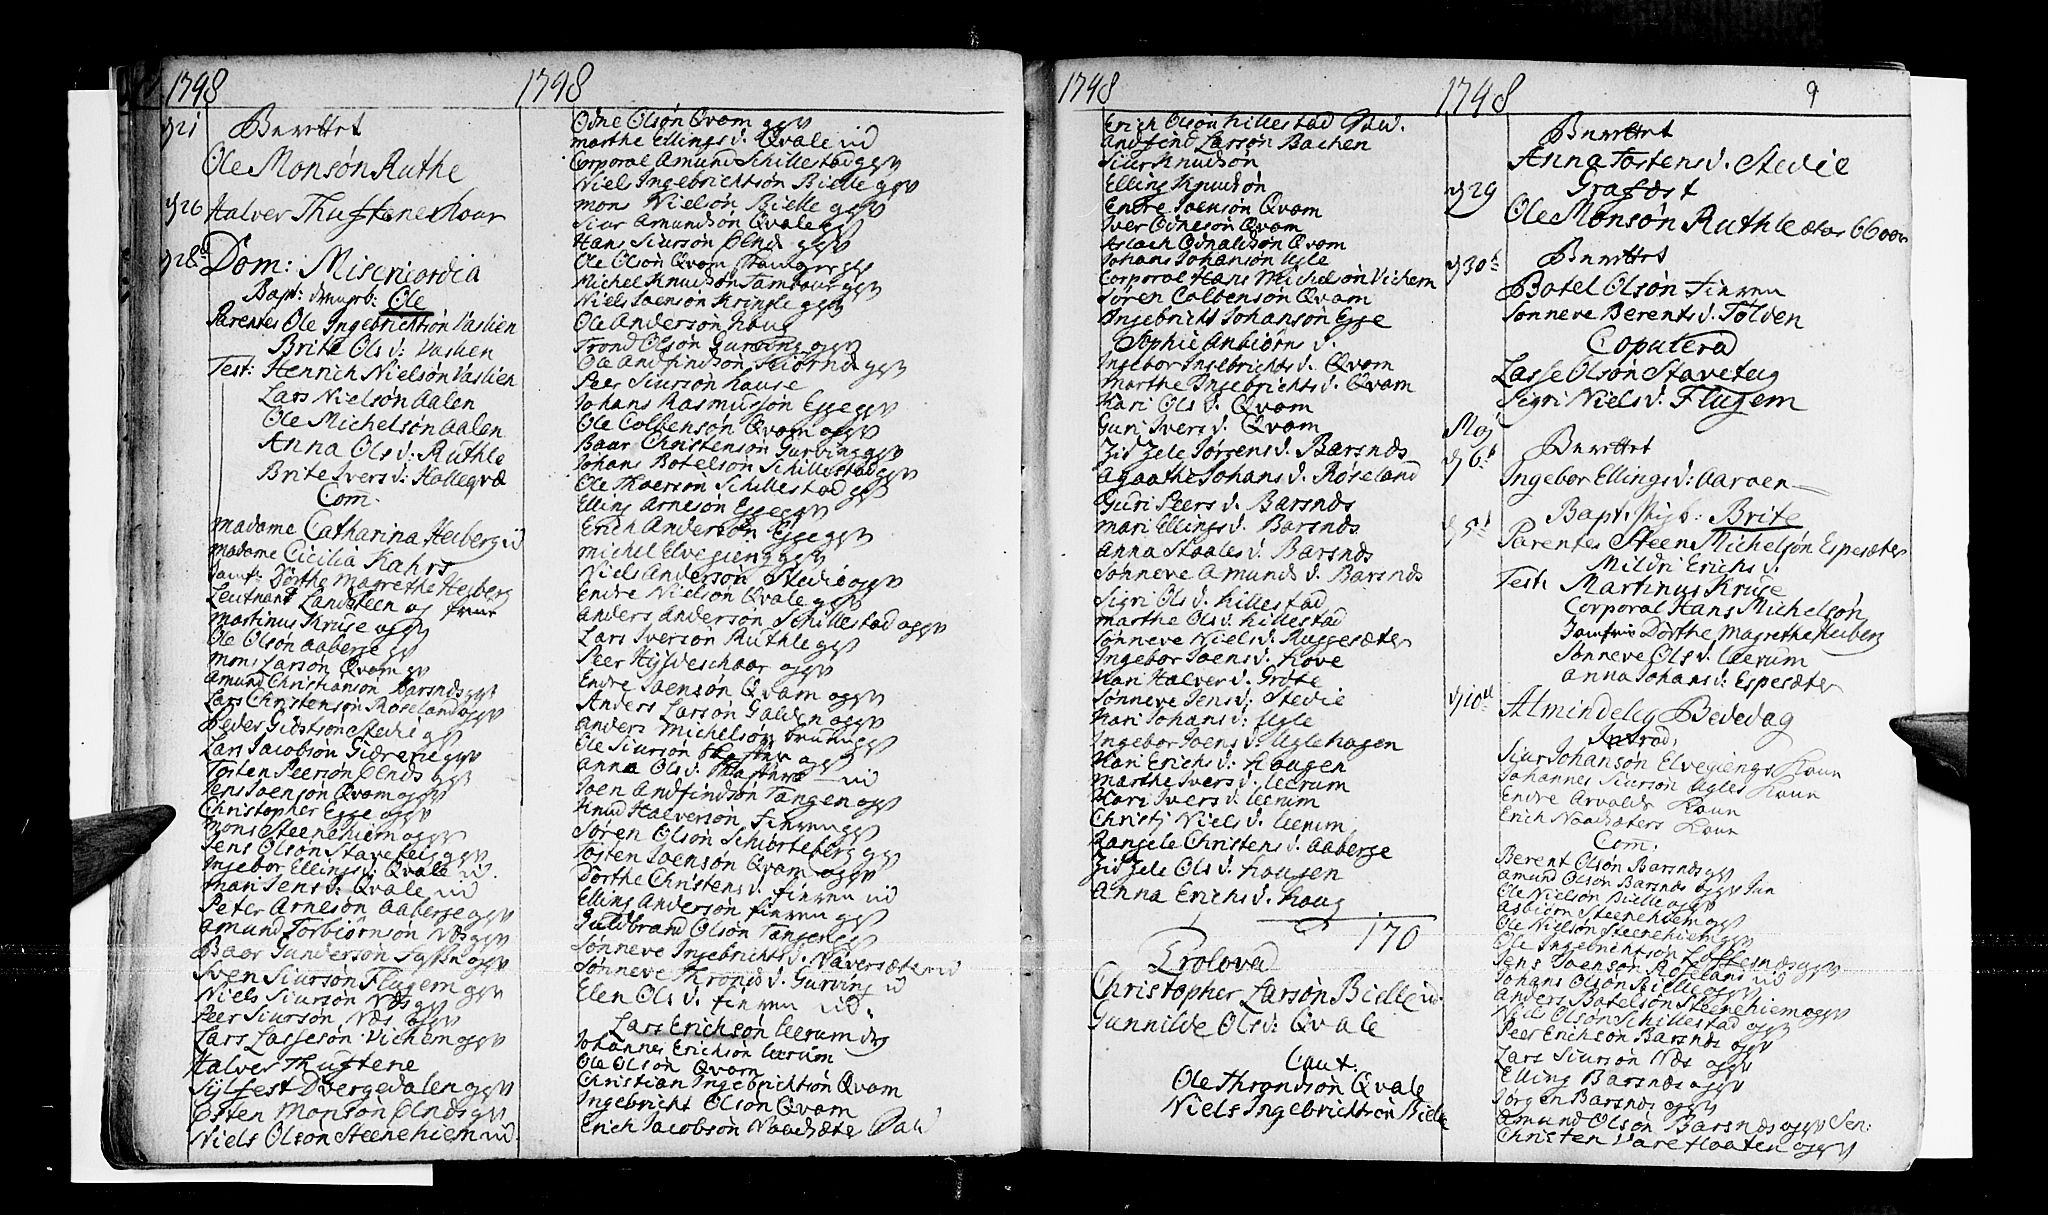 1748
d 21 Berettet
Ole Monsøn Ruthe
d 26 Halver Thufteneskonr
d 28d Dom: Misericordia
Bapt: Ole
Parentes Ole Ingebrichtsøn Vaslien
Brite Ols d: Vaslien
Test: Henrich Nielsøn Vaslien
Lars Nielsøn Aalen
Ole Michelsøn Aalen
Anna Ols d: Ruthle
Brite Ivers d: Hallegvæ
Com.
Madame Catharina Heiberg ud
Madame Cicilia Kahrs
Jomf: Dorthe Magrethe Heiberg
Leutnant Landsteen og frue
Martinus Kruse og gv
Ole Olsøn Aaberge gv
Mons Larsøn Qvam gv
Amund Christiansøn Barsnds gv
Lars Christensøn Røseland og gv
Peder Stedie gv
Lars Jacobsøn og gv
Tosten Peersøn Olnds gv
Jens Joensøn Qvam og gv
Christopher Egge og gv
Mons Steenehiem og gv
Jens Olsøn Staveteig gv
Ingebor Ellings d: Qvale ud.
Mari Jens d: Qvale ud
Peter Arnesøn Aaberge og gv
Amund Torbiørnsøn Næs gv
Baar Gundersøn og gv
Sven Siursøn Flugem gv
Niels Siursøn Næs gv
Peer Siursøn Næs og gv
Lars Lassesøn Vichem og gv
Halver Thuftene
Sylfest Dvergedalen og gv
Osten Monsøn Olnds gv
Niels Olsøn Steenehiem ud.
1748
Odne Olsøn Qvam og gv
Marthe Ellings d. Qvale ud
Corporal Amund Schillestad gv
Niels Ingebrichtsøn Bielle gv
Mons Nielsøn Bielle gv
Siur Amundsøn Qvale gv
Hans Siursøn Olnds gv
Ole Olsøn Qvam gv
Michel Knudsøn Tambour gv
Niels Joensøn Kringle gv
Ole Andersøn Haug
Trond Olsøn Gurving og gv
Ole Andfindsøn gv
Peer Siursøn Hause
Johans Rasmussøn Egge gv
Ole Colbensøn Qvam og gv
Baar Christensøn Gurving gv
Johans Botelsøn Schillestad gv
Ole Thoersøn Schillestad gv
Elling Arnesøn Egge gv
Erich Andersøn Egge gv
Michel Elvegieng gv
Niels Andersøn Stedie og gv
Endre Nielsøn Qvale gv
Anders Andersøn Schillestad og gv
Lars Iversøn Ruthle gv
Peer Hyldeschaar og gv
Endre Joensøn Qvam og gv
Anders Larsøn Galden og gv
Anders Michelsøn gv
Ole Siursøn og gv
Anna Ols d. ud
Joen Andfindsøn Tangen og gv
Knud Halversøn Finven gv
Søren Olsøn Schiørteberg gv
Tosten Joensøn Qvam og gv
Dorthe Christens d. Finven ud
Elling Andersøn Finven gv
Guldbrand Olsøn Tangen gv
Sønneve Ingebrichts d. Naversæter ud
Sønneve Thronds d. Gurving ud
Elen Ols d. Finven ud.
Lars Erichsøn Leerum
Johannes Erichsøn Leerum
Ole Olsøn Qvam
Christian Ingebrichtsøn Qvam
Ingebricht Olsøn Qvam
Erich Jacobsøn
1748
Erich Olsøn Lillestad
Andfind Larsøn Bachen
Siur Knudsøn
Elling Knudsøn
Endre Joensøn Qvam
Iver Odnesøn Qvam
Aslach Odnaldsøn Qvam
Johans Johansøn Ugle
Corporal Hans Michelsøn Vichem
Søren Colbensøn Qvam
Ingebricht Johansøn Egge
Sophie Anbiørns d.
Ingebor Ingebrichts d. Qvam
Marthe Ingebrichts d. Qvam
Kari Ols d. Qvam
Guri Ivers d. Qvam
Zidzele Jørgens d. Barsnds
Agaathe Johans d. Røseland
Guri Peers d. Barsnds
Mari Ellings d. Barsnds
Anna Staales d. Barsnds
Sønneve Amunds d. Barsnds
Sigri Ols d. Lillestad
Marthe Ols d. Lillestad
Sønneve Niels d. Ruggesæter
Ingebor Joens d. Hove
Kari Halver d. Grøte
Sønneve Jens d. Stedie
Kari Johans d: Ugle
Ingebor Joens d: Uglehagen
Kari Erichs d: Haugen
Marthe Ivers d. Leerum
Kari Ivers d: Leerum
Christi Niels d. Leerum
Rangele Christens d. Aaberge
Zidzele Ols d. Haugen
Anna Erichs d. Haug
170
Trolovad
Christopher Larsøn Bielle ud.
Gunnilde Ols d: Qvale
Caut:
Ole Throndsøn Qvale
Niels Ingebrichtsøn Bielle
1748 9
Berettet
Anna Tostens d. Stedie
d 29 Grafæst
Ole Monsøn Ruthle ætat 66 aar
d 30d Berettet
Botel Olsøn Finven
Sønneve Berents d. Tolven
Copulerad
Lasse Olsøn Staveteig
Sigri Niels d. Flugem
Maj
d 6d Berettet
Ingebor Ellings d: Aaroen
d 5d Bapt: Brite
Parentes Steen Michelsøn Espesæter
Mildri Erichs d.
Test: Martinus Kruse
Corporal Hans Michelsøn
Jomfru Dorthe Magrethe Heiberg
Sønneve Ols d. Leerum
Anna Johans d: Espesæter
d 10d Almindelig Bededag
Introd:
Siur Johansøn Elvegiengs Konn
Johannes Siursøn Ugles Konn
Endre Arvolds Konn
Erich Konn
Com.
Berent Olsøn Barsnds gv
Amund Olsøn Barsnds og gv Jun
Ole Nielsøn Bielle og gv
Asbiørn Steenehiem og gv
Ole Nielsøn Steenehiem gv
Ole Ingebrichtsøn Loftesnæs og gv
Jens Joensøn Roseland ud
Johans Olsøn Bielle og gv
Anders Botelsøn Steenehiem og gv
Niels Olsøn Schillestad og gv
Peer Erichsøn Barsnds og gv
Lars Siursøn Næs og gv
Elling Barsnds og gv
Jørgen Barsnds og gv
Amund Olsøn Barsnds og gv Sen:
Christen Vare Haaten og gv